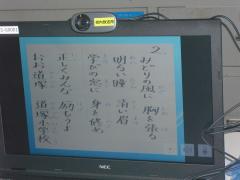 2
みどりの風に 胸を張る
明るい瞳 清い眉
学びの窓に 身を修め
正しくみんな 励もうよ
おお道塚 道塚小学校
NEC